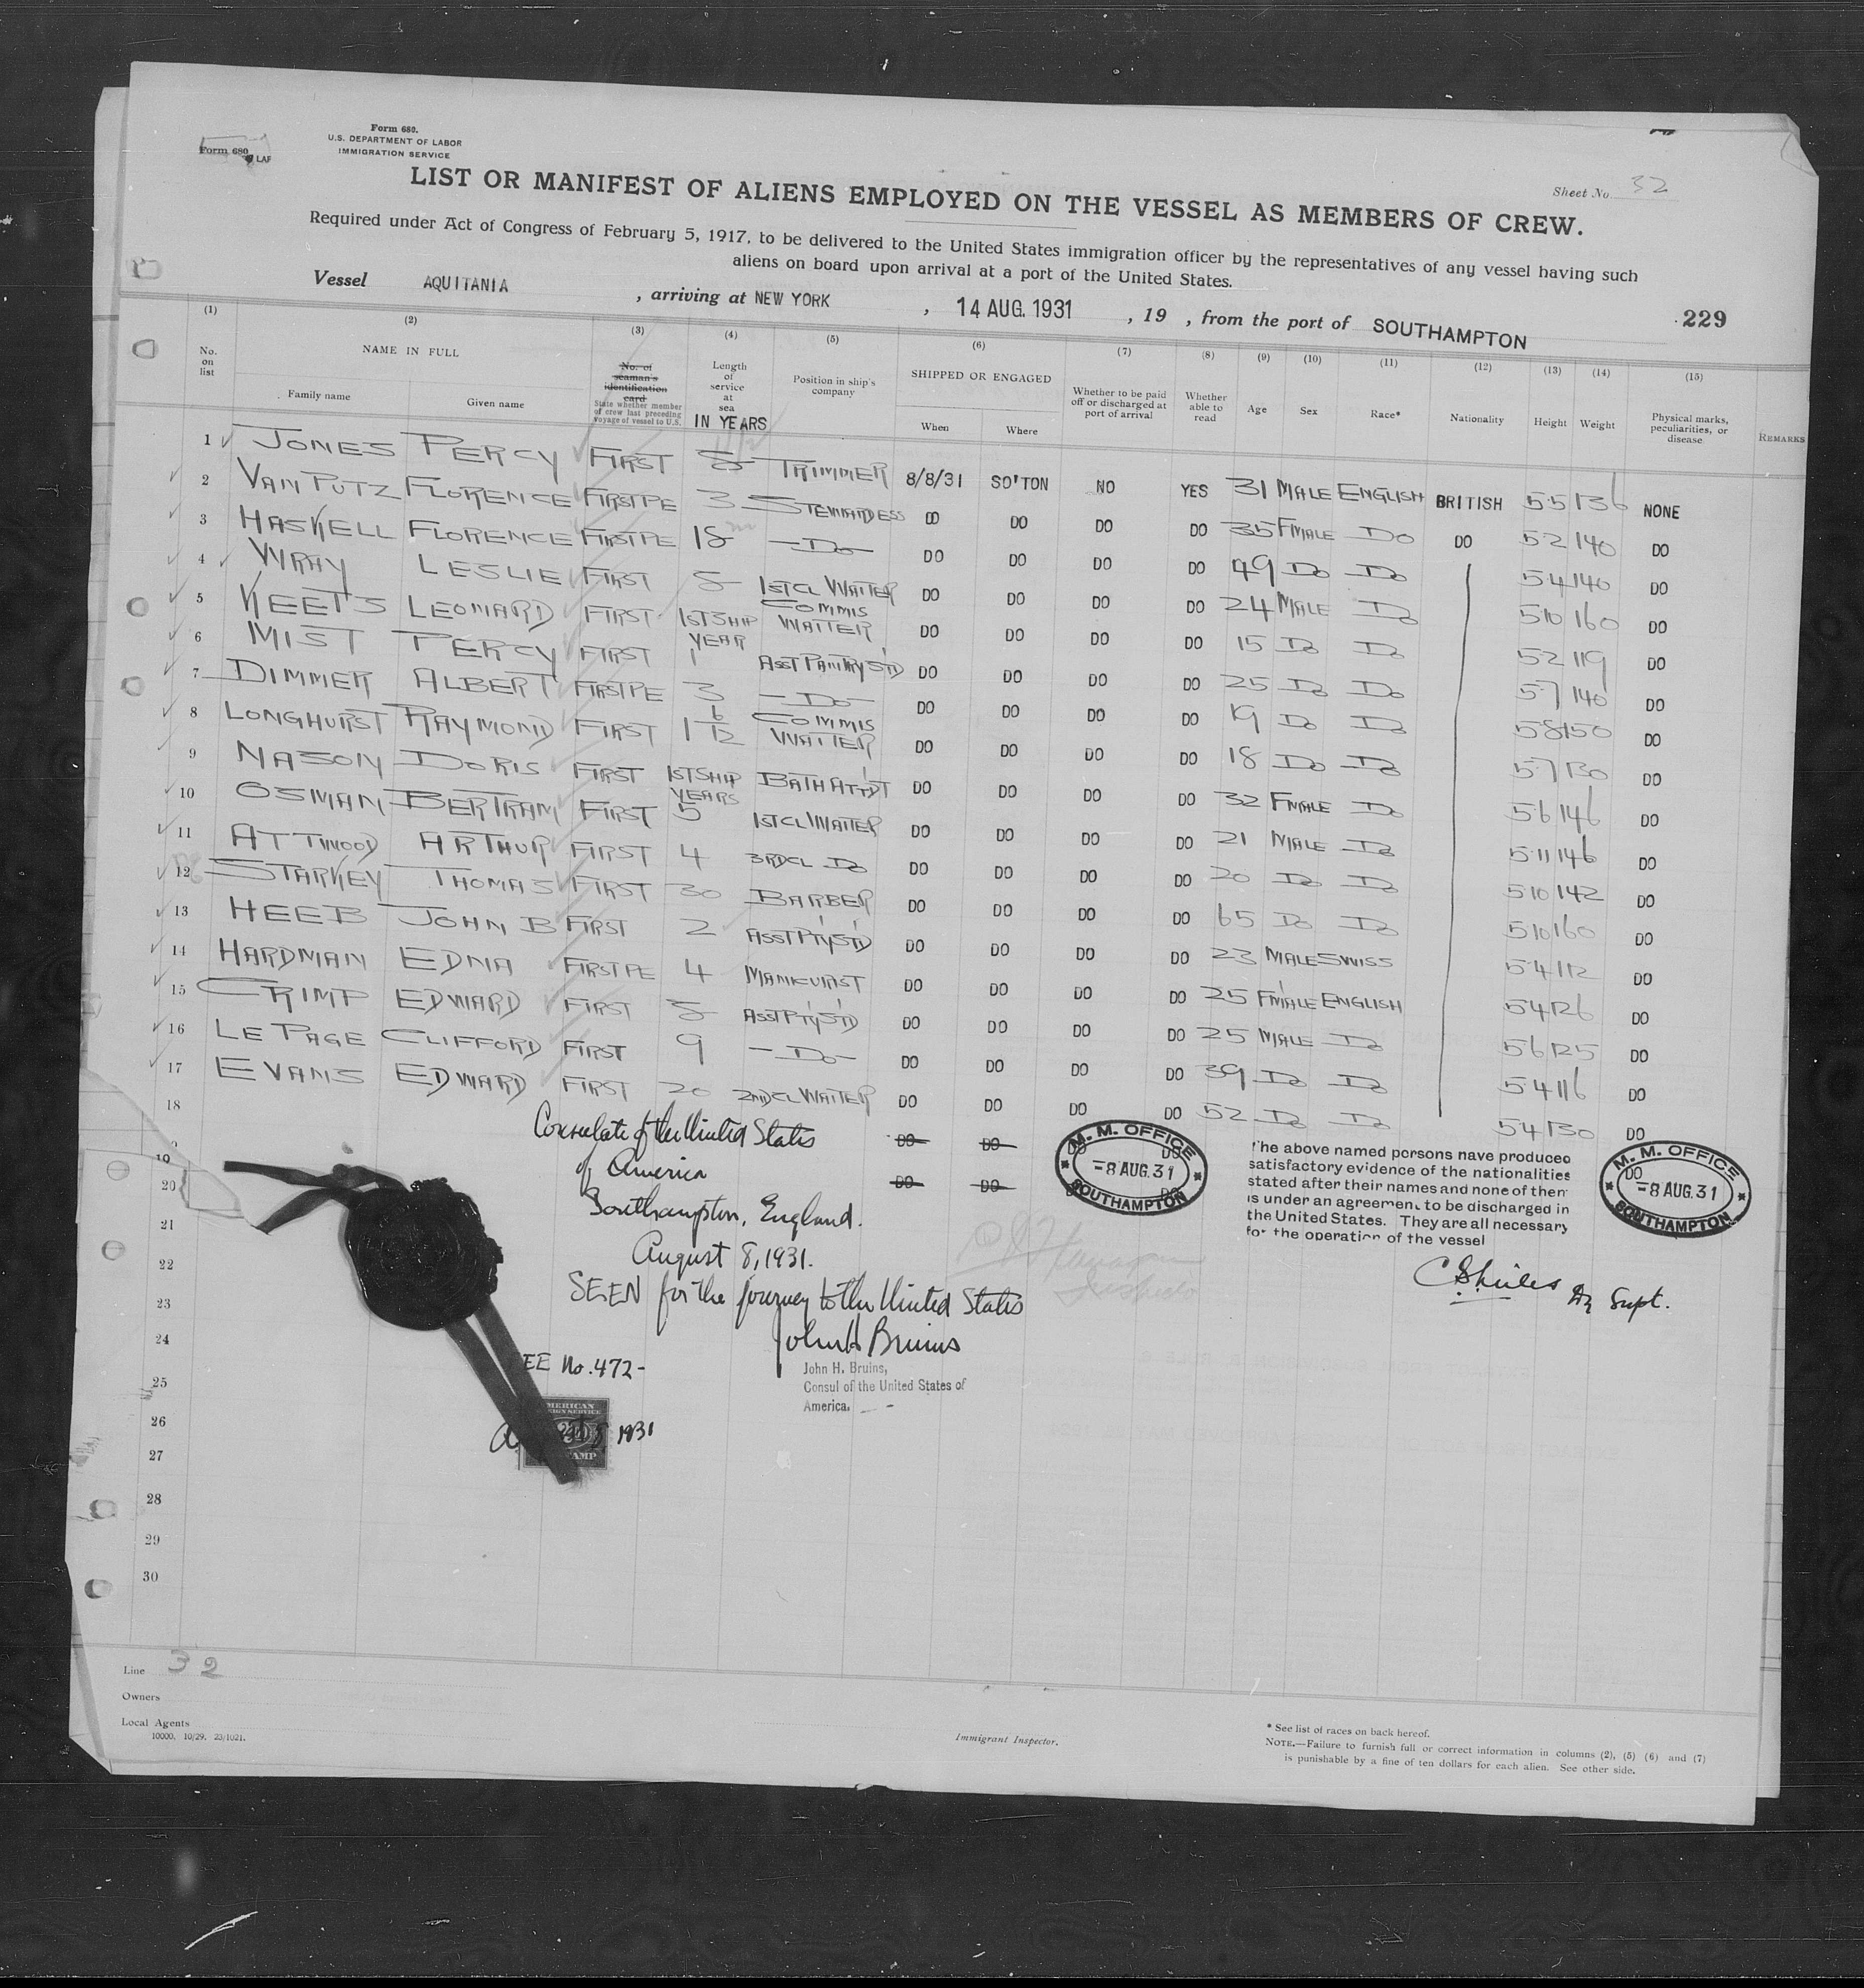 Form 680.
U.S. DEPARTMENT OF LABOR
IMMIGRATION SERVICE
Form 680
Sheet No. 32
LIST OR MANIFEST OF ALIENS EMPLOYED ON THE VESSEL AS MEMBERS OF CREW.
Required under Act of Congress of February 5, 1917, to be delivered to the United States immigration officer by the representatives of any vessel having such
aliens on board upon arrival at a port of the United States.
Vessel AQUITANIA , arriving at NEW YORK , 14 AUG. 1931 , 19 , from the port of SOUTHAMPTON 229
(1) (2) (3) (4) (5) (6) (7) (8) (9) (10) (11) (12) (13) (14) (15)
No. on list NAME IN FULL Family name Given name No. of seaman's identification card State whether member of crew last preceding voyage of vessel to U.S. Length of service at sea IN YEARS Position in ship's company SHIPPED OR ENGAGED When Where Whether to be paid off or discharged at port of arrival Whether able to read Age Sex Race* Nationality Height Weight Physical marks, peculiarities, or disease REMARKS
1 JONES PERCY FIRST TRIMMER 8/8/31 SO'TON NO YES 31 MALE ENGLISH BRITISH 5 5 136 NONE
2 VAN PUTZ FLORENCE FIRST PE 3 STEWARDESS DO DO DO DO 35 FMALE DO DO 5 2 140 DO
3 HASKELL FLORENCE FIRST PE 18 - DO - DO DO DO DO 49 DO DO 5 4 140 DO
4 WRAY LESLIE FIRST 5 1ST CL WAITER DO DO DO DO 24 MALE DO 5 10 160 DO
5 KEETS LEONARD FIRST 1ST SHIP COMMIS WAITER DO DO DO DO 15 DO DO 5 2 119 DO
6 MIST PERCY FIRST YEAR 1 ASST PANTRY ST'D DO DO DO DO 25 DO DO 5 7 140 DO
7 DIMMER ALBERT FIRST PE 3 - DO - DO DO DO DO 19 DO DO 5 8 150 DO
8 LONGHURST RAYMOND FIRST 1 6/12 COMMIS WAITER DO DO DO DO 18 DO DO 5 7 130 DO
9 NASON DORIS FIRST 1ST SHIP BATH ATT'DT DO DO DO DO 32 FMALE DO 5 6 146 DO
10 OSMAN BERTRAM FIRST YEARS 5 1ST CL WAITER DO DO DO DO 21 MALE DO 5 11 146 DO
11 ATTWOOD ARTHUR FIRST 4 3RD CL DO DO DO DO DO 20 DO DO 5 10 142 DO
12 STARKEY THOMAS FIRST 30 BARBER DO DO DO DO 65 DO DO 5 10 160 DO
13 HEEB JOHN B FIRST 2 ASST P'TY ST'D DO DO DO DO 23 MALE SWISS 5 4 112 DO
14 HARDMAN EDNA FIRST PE 4 MANCURIST DO DO DO DO 25 F'MALE ENGLISH 5 4 126 DO
15 CRIMP EDWARD FIRST 5 ASST P'TY ST'D DO DO DO DO 25 MALE DO 5 6 125 DO
16 LE PAGE CLIFFORD FIRST 9 - DO - DO DO DO DO 39 DO DO 5 4 116 DO
17 EVANS EDWARD FIRST 20 2ND CL WAITER DO DO DO DO 52 DO DO 5 4 130 DO
18 DO DO DO DO
19
20 DO DO DO
21
22
23
24
25
26
27
28
29
30
Consulate of the United States
of America
Southampton, England.
August 8, 1931.
SEEN for the journey to the United States
John H Bruins
John H. Bruins,
Consul of the United States of
America.
EE No. 472-
1931
M. M. OFFICE
-8 AUG.31
SOUTHAMPTON
The above named persons have produced
satisfactory evidence of the nationalities
stated after their names and none of them
is under an agreement to be discharged in
the United States. They are all necessary
for the operation of the vessel
M. M. OFFICE
-8 AUG.31
SOUTHAMPTON
Supt.
Line 32
Owners
Local Agents
10000. 10/29. 23/1021.
Immigrant Inspector.
* See list of races on back hereof.
NOTE.—Failure to furnish full or correct information in columns (2), (5) (6) and (7)
is punishable by a fine of ten dollars for each alien. See other side.